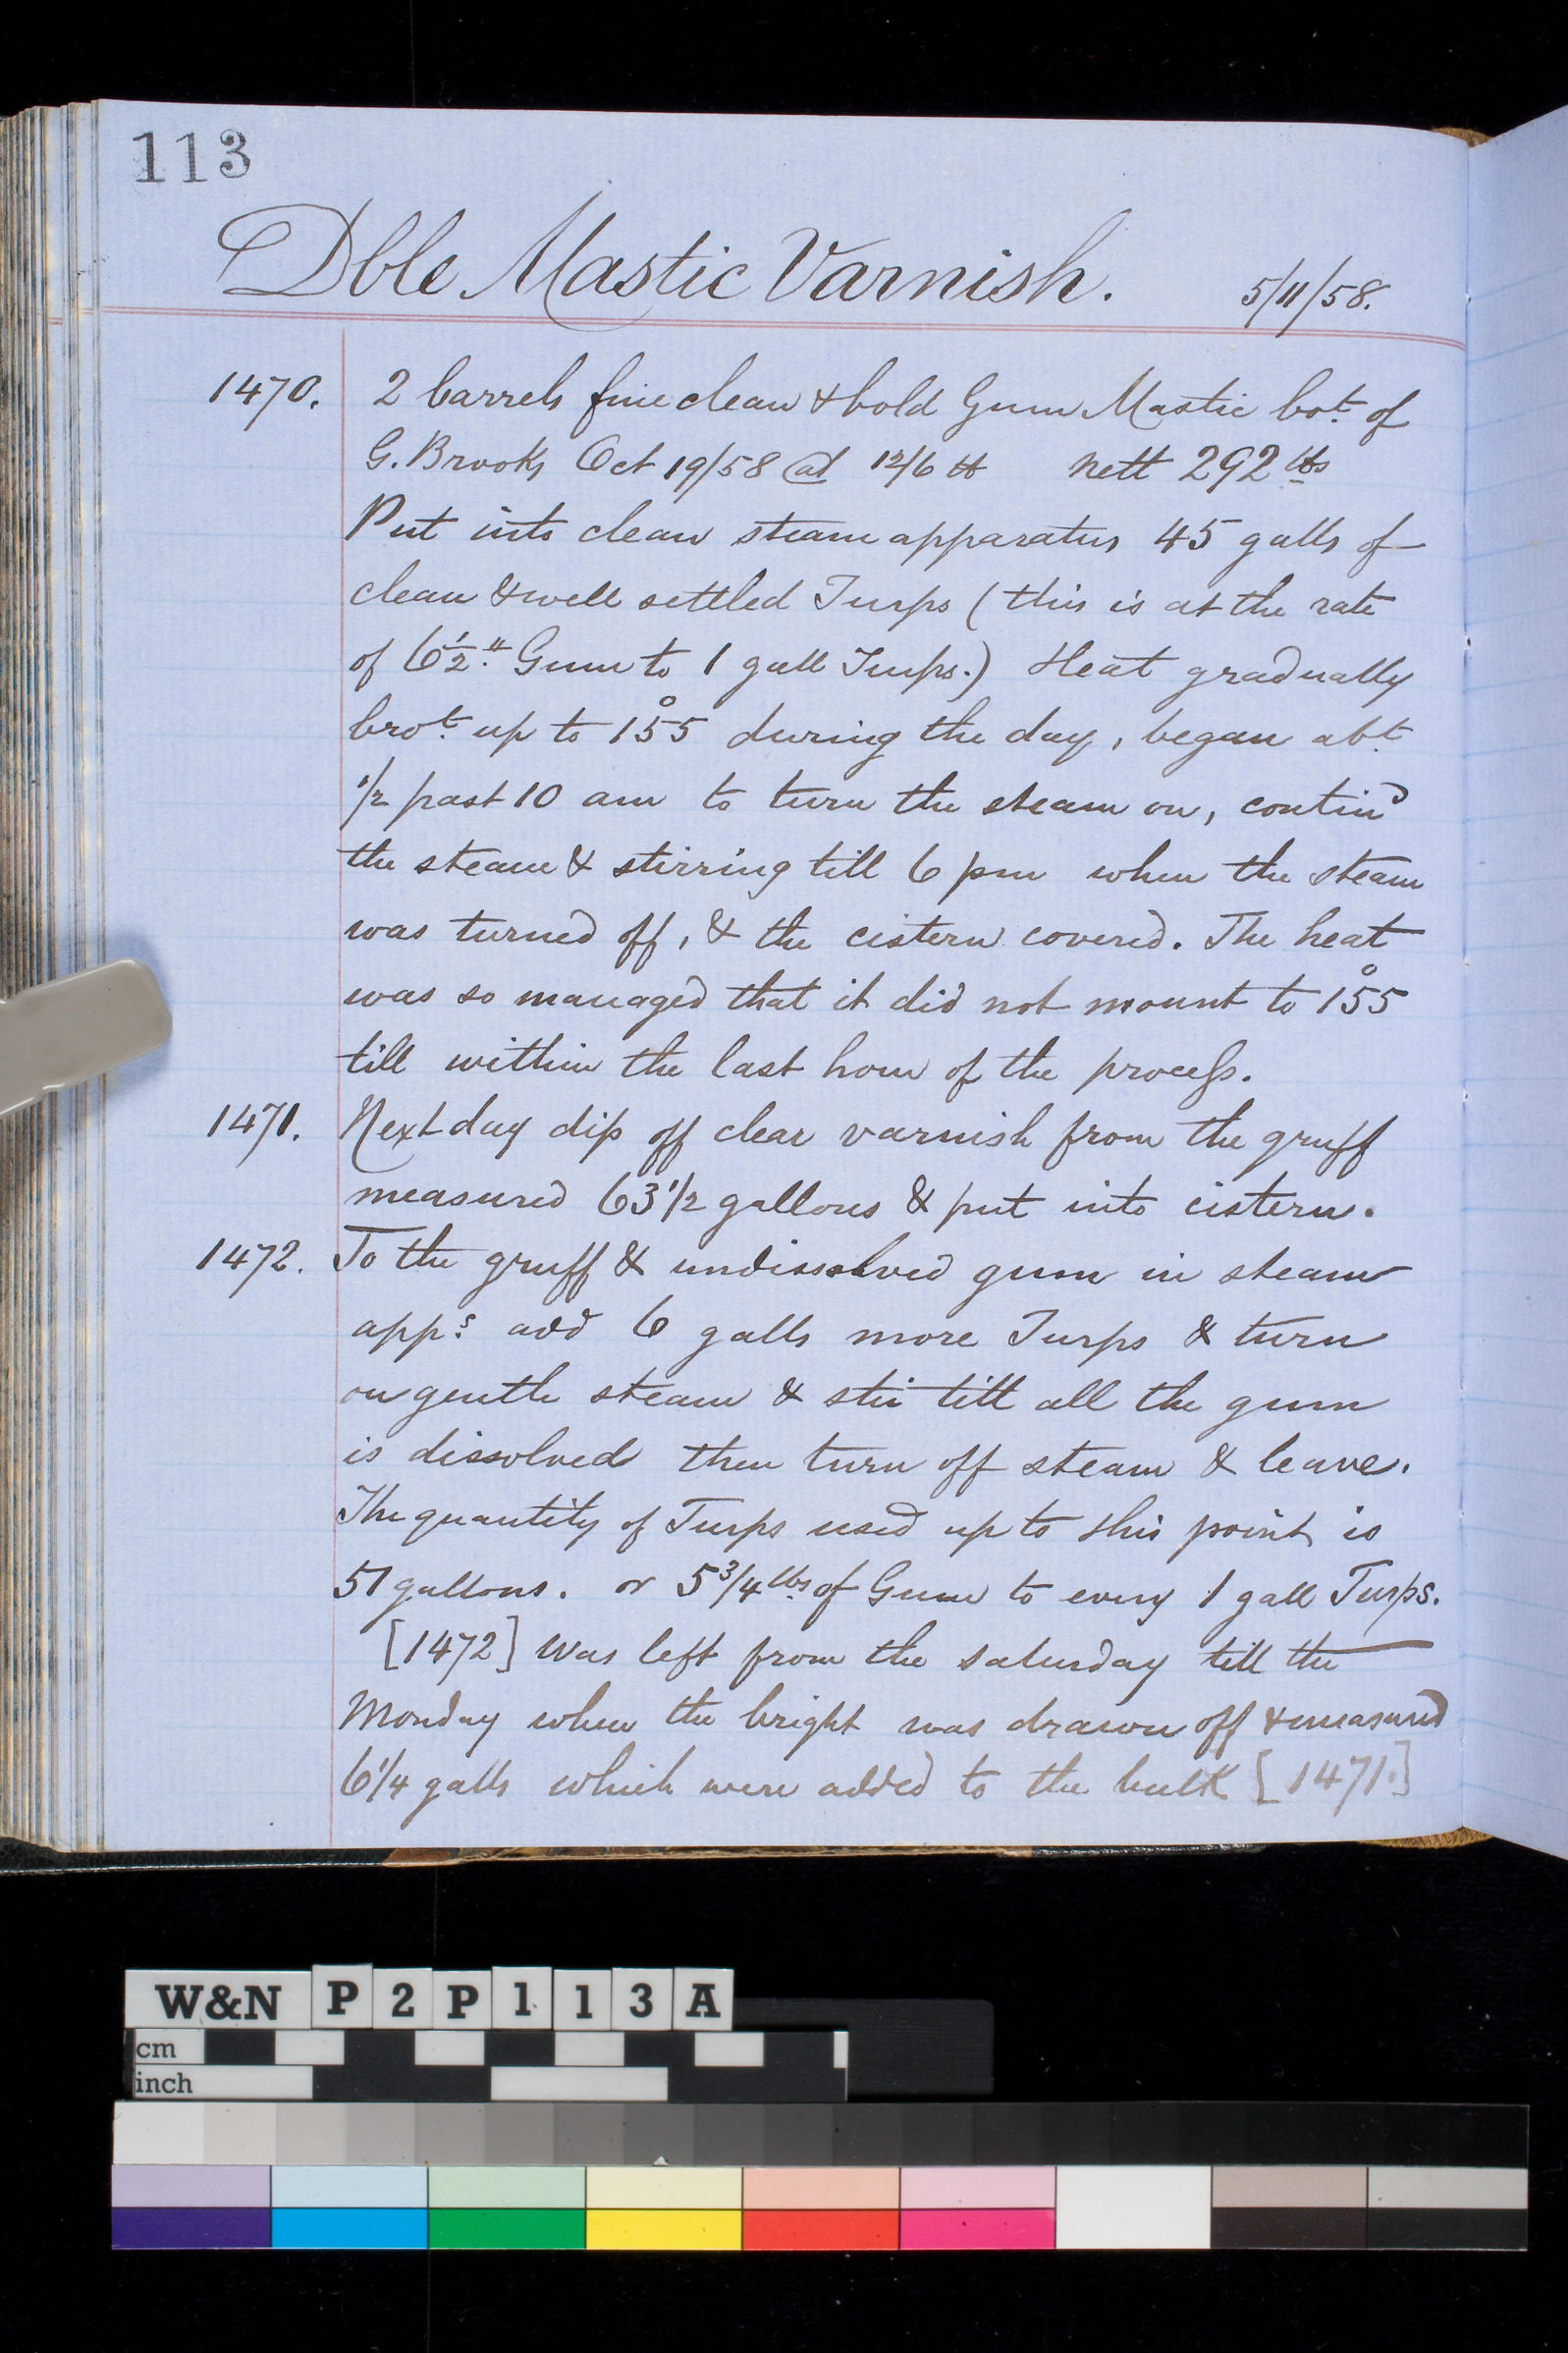 113
Dble Mastic Varnish. 5/11/58.
1470. 2 barrels fine clean & bold Gum Mastic bot. of
G. Brooks Oct 19/58 @ 12/6 lb nett 292 lbs
Put into clean steam apparatus 45 galls of
clean & well settled Turps (this is at the rate
of 6 1/2 lb Gum to 1 gall Turps.) Heat gradually
brot. up to 155° during the day, began abt.
1/2 past 10 am to turn the steam on, contind
the steam & stirring till 6 pm when the steam
was turned off, & the cistern covered. The heat
was so managed that it did not mount to 155°
till within the last hour of the process.
1471. Next day dip off clear varnish from the gruff
measured 63 1/2 gallons & put into cistern.
1472. To the gruff & undissolved gum in steam
apps. add 6 galls more Turps & turn
on gentle steam & stir till all the gum
is dissolved then turn off steam & leave.
The quantity of Turps used up to this point is
51 gallons. or 5 3/4 lbs. of Gum to every 1 gall Turps.
[1472] was left from the saturday till the
Monday when the bright was drawn off & measured
6 1/4 galls which were added to the bulk [1471.]
W&N P2P113A
cm
inch